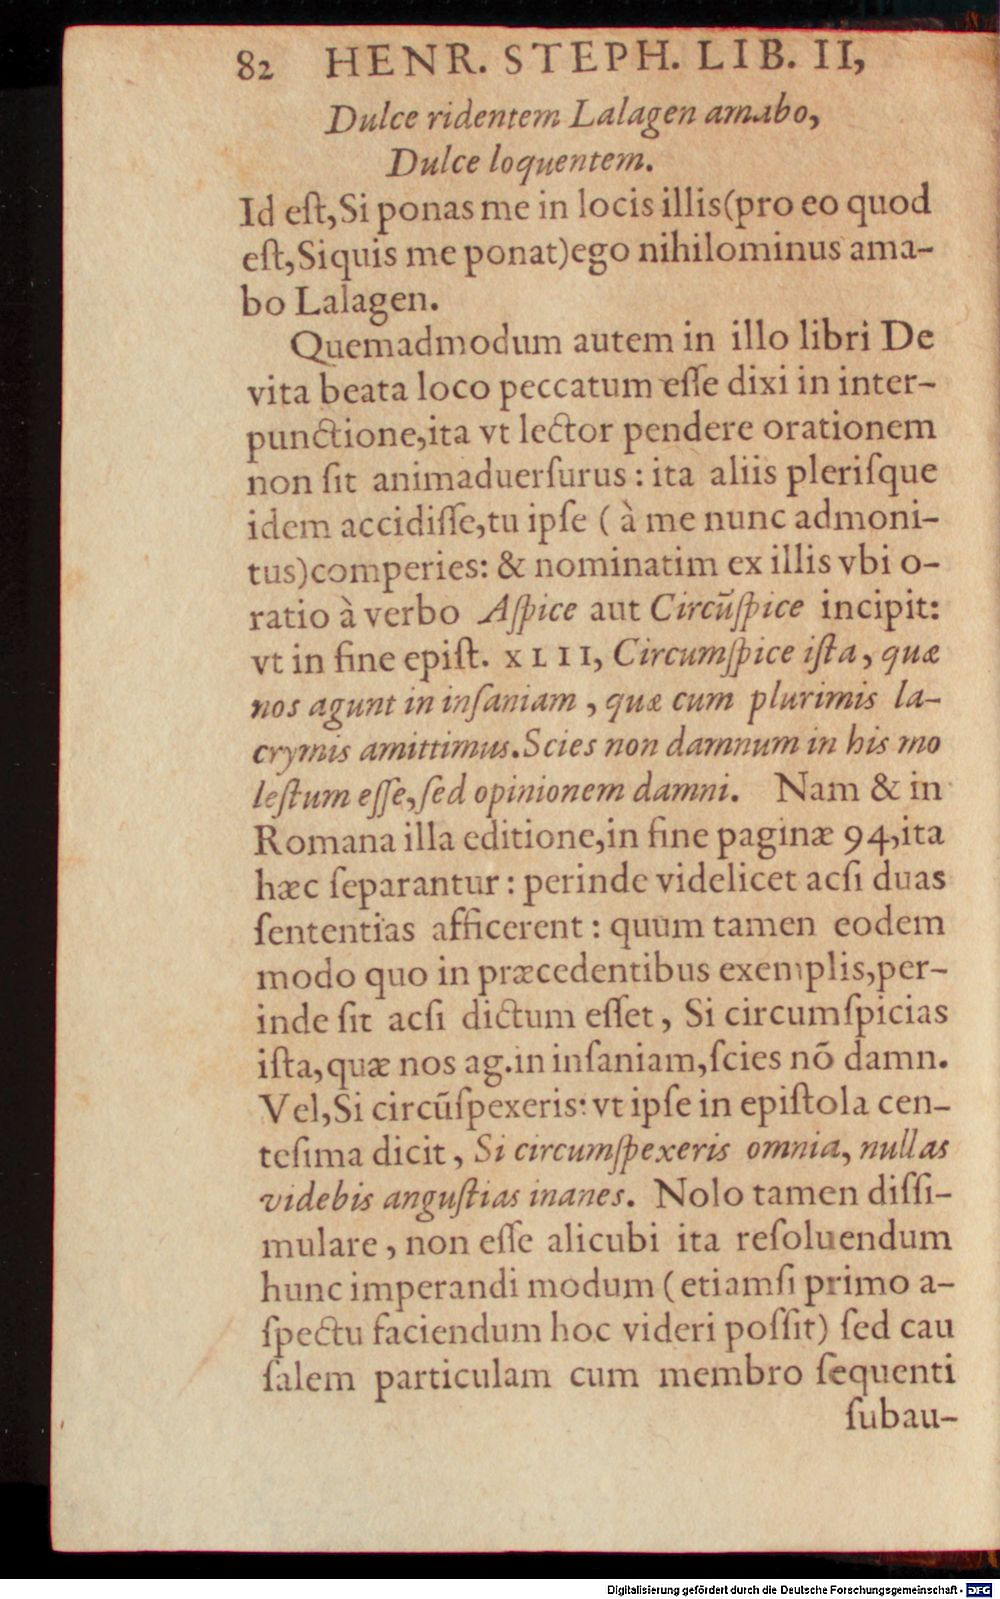 82 HENR. STEPH. LIB. II,
Dulce ridentem Lalagen amabo,
Dulce loquentem.
Id eſt,Si ponas me in locis illis(pro eo quod
eſt,Siquis me ponat)ego nihilominus ama-
bo Lalagen.
Quemadmodum autem in illo libri De
vita beata loco peccatum eſſe dixi in inter-
punctione,ita vt lector pendere orationem
non ſit animaduerſurus : ita aliis pleriſque
idem accidiſſe,tu ipſe ( à me nunc admoni-
tus)comperies: & nominatim ex illis vbi o-
ratio à verbo Aſpice aut Circūſpice incipit:
vt in fine epiſt. XLIII, Circumſpice iſta, quæ
nos agunt in inſaniam , quæ cum plurimis la-
crymis amittimus.Scies non damnum in his mo
leſtum eſſe,ſed opinionem damni. Nam & in
Romana illa editione,in fine paginæ 94,ita
hæc ſeparantur : perinde videlicet acſi duas
ſententias afficerent : quum tamen eodem
modo quo in præcedentibus exemplis,per-
inde ſit acſi dictum eſſet, Si circumſpicias
iſta,quæ nos ag.in inſaniam,ſcies nō damn.
Vel,Si circūſpexeris: vt ipſe in epiſtola cen-
teſima dicit, Si circumſpexeris omnia, nullas
videbis anguſtias inanes. Nolo tamen diſſi-
mulare, non eſſe alicubi ita reſoluendum
hunc imperandi modum (etiamſi primo a-
ſpectu faciendum hoc videri poſſit) ſed cau
ſalem particulam cum membro ſequenti
ſubau-
Digitalisierung gefördert durch die Deutsche Forschungsgemeinschaft - DFG